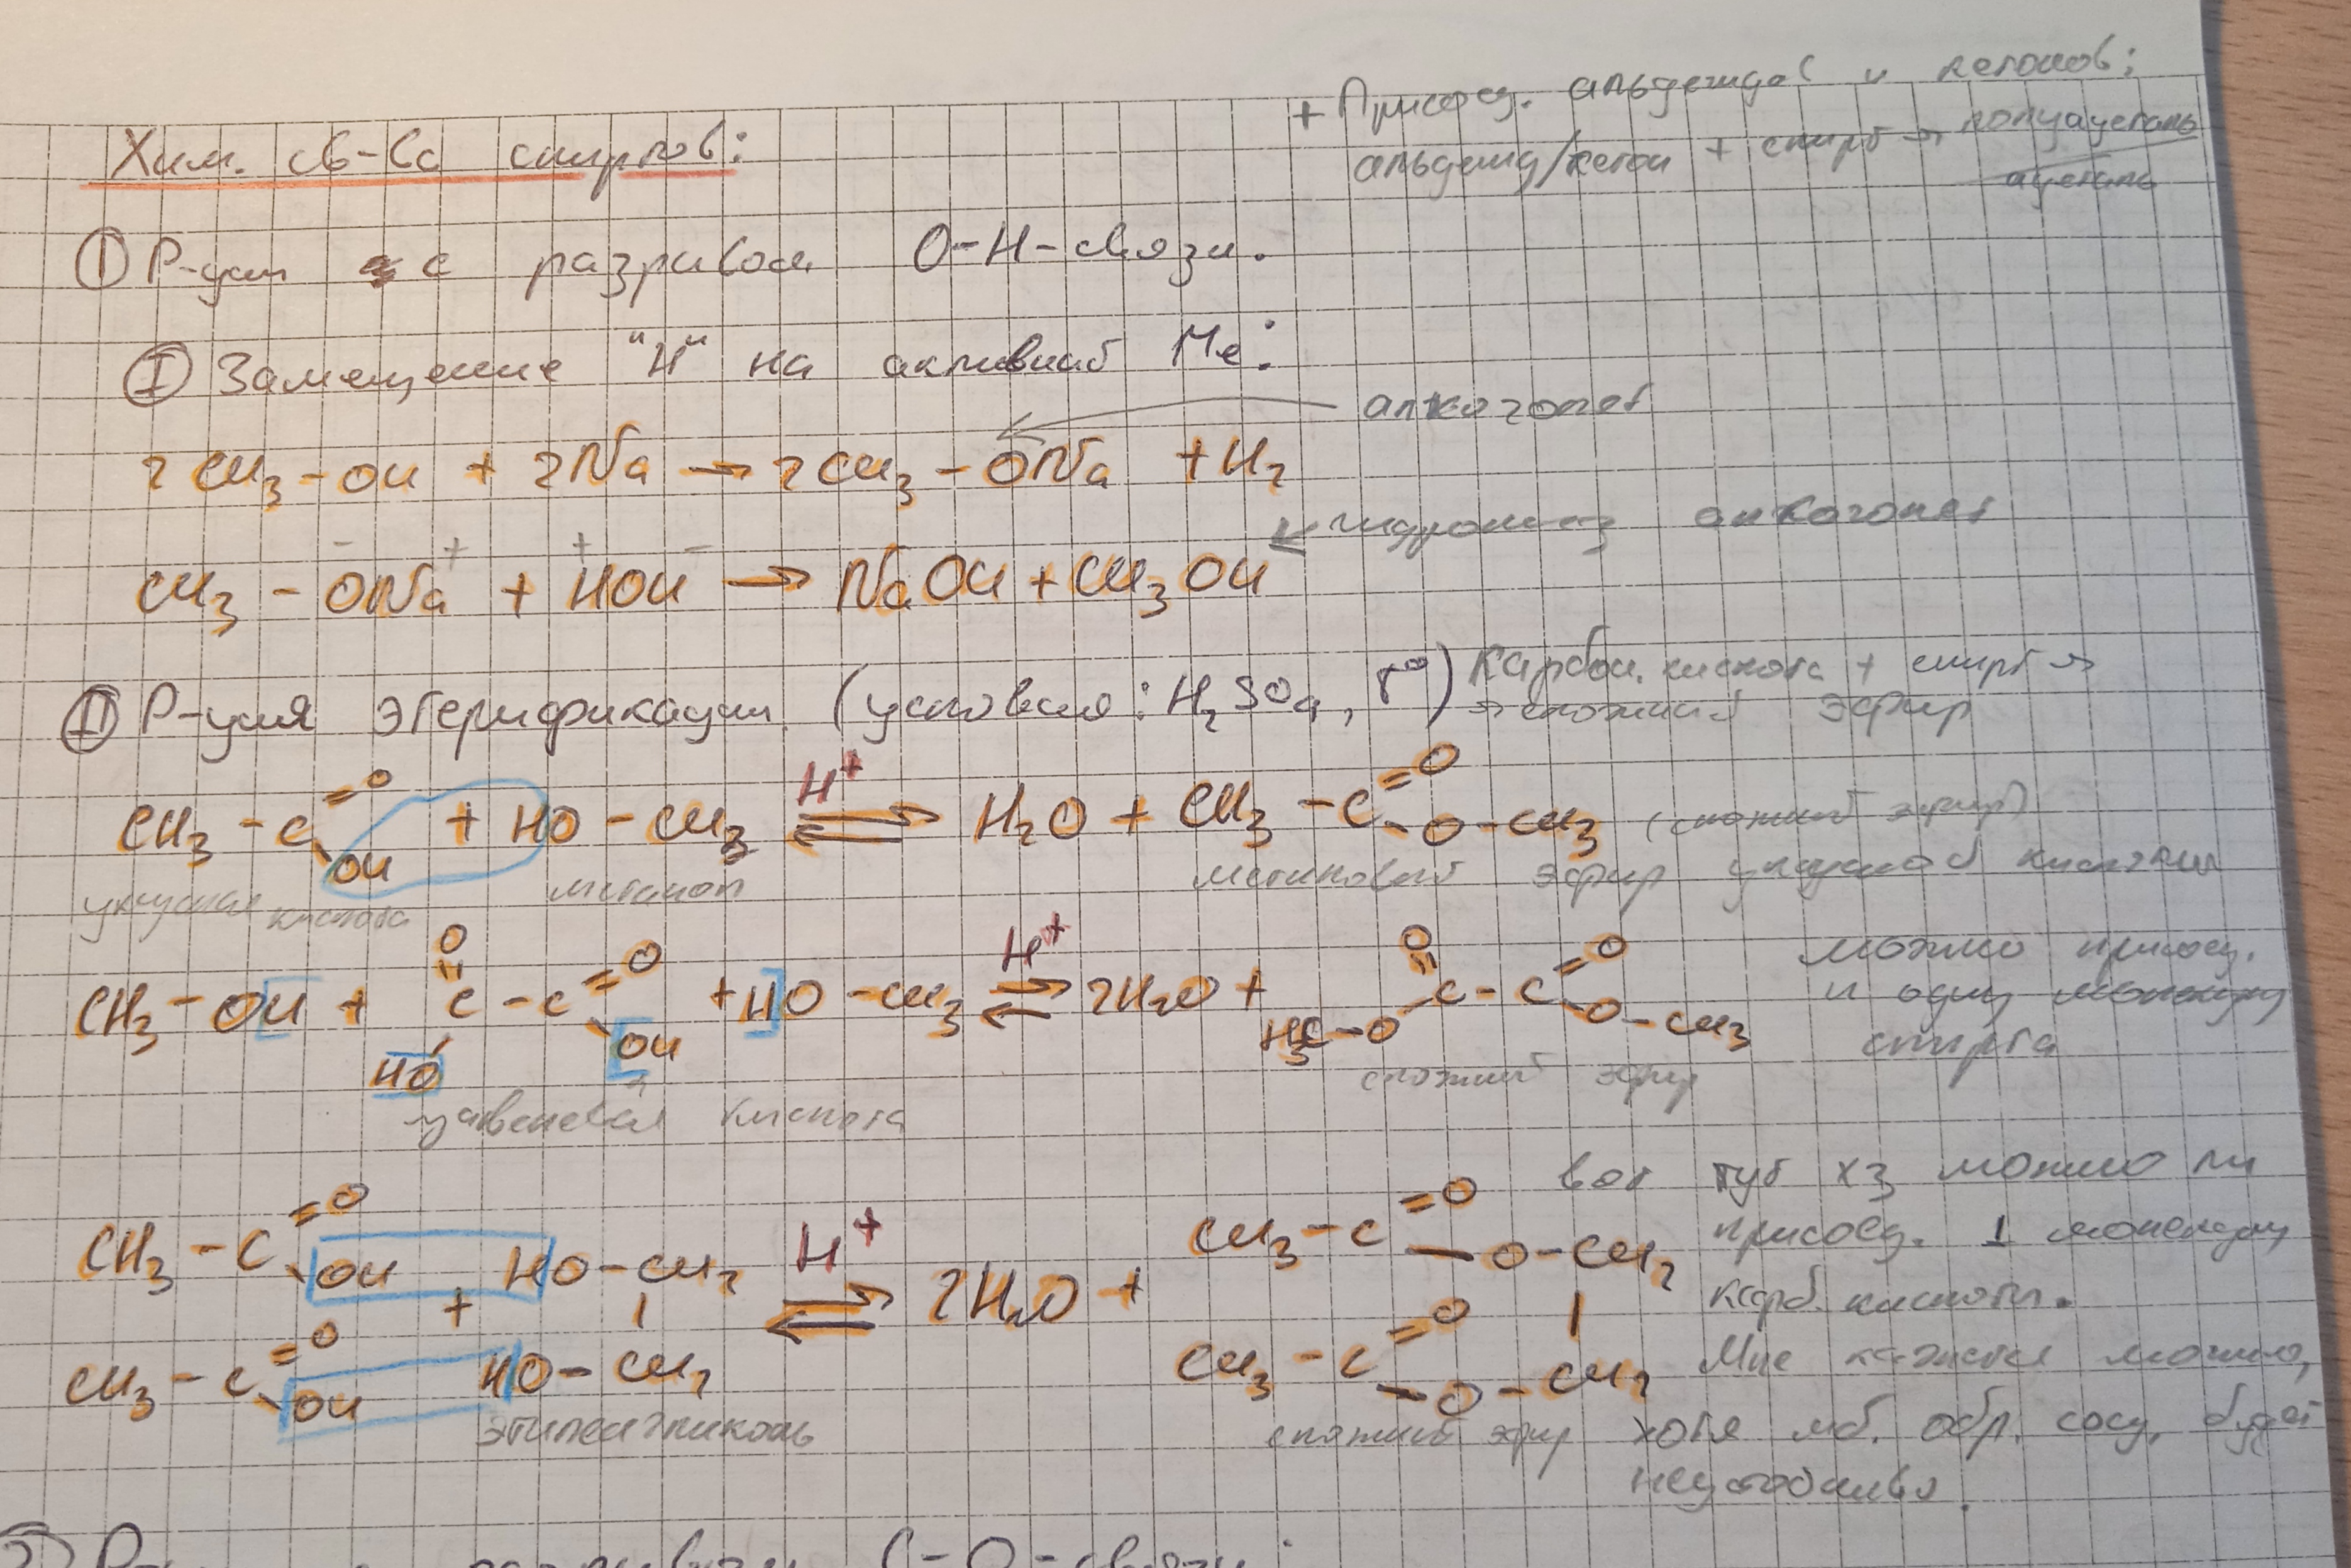 + Присоед. альдегидов и кетонов:
альдегид/кетон + спирт → полуацеталь
ацеталь
Хим. св-ва спиртов:
① Р-ции с разрывом О-Н-связи.
Ⓘ Замещение "Н" на активный Ме:
алкоголят
2CH₃-OH + 2Na → 2CH₃-ONa + H₂
гидролиз алкоголят
CH₃-O⁻Na⁺ + H⁺OH⁻ → NaOH + CH₃OH
Ⓘ Р-ция этерификации (условия: H₂SO₄, t°) Карбон. кислота + спирт →
→ сложный эфир
CH₃-C(=O)-OH + HO-CH₃ ⇌ H⁺ H₂O + CH₃-C(=O)-O-CH₃ (сложный эфир)
уксусная кислота метанол метиловый эфир уксусной кислоты
CH₃-OH + HO-C(=O)-C(=O)-OH + HO-CH₃ ⇌ H⁺ 2H₂O + H₃C-O-C(=O)-C(=O)-O-CH₃
можно присоед.
и одну молекулу
спирта
щавелевая кислота сложный эфир
CH₃-C(=O)-OH + HO-CH₂ ⇌ H⁺ 2H₂O + CH₃-C(=O)-O-CH₂
CH₃-C(=O)-OH HO-CH₂ CH₃-C(=O)-O-CH₂
этиленгликоль сложный эфир
вот тут хз можно ли
присоед. 1 молекулу
карб. кислоты.
Мне кажется можно,
хотя мб. обр. соед. будет
неустойчиво.
C-O-связи: